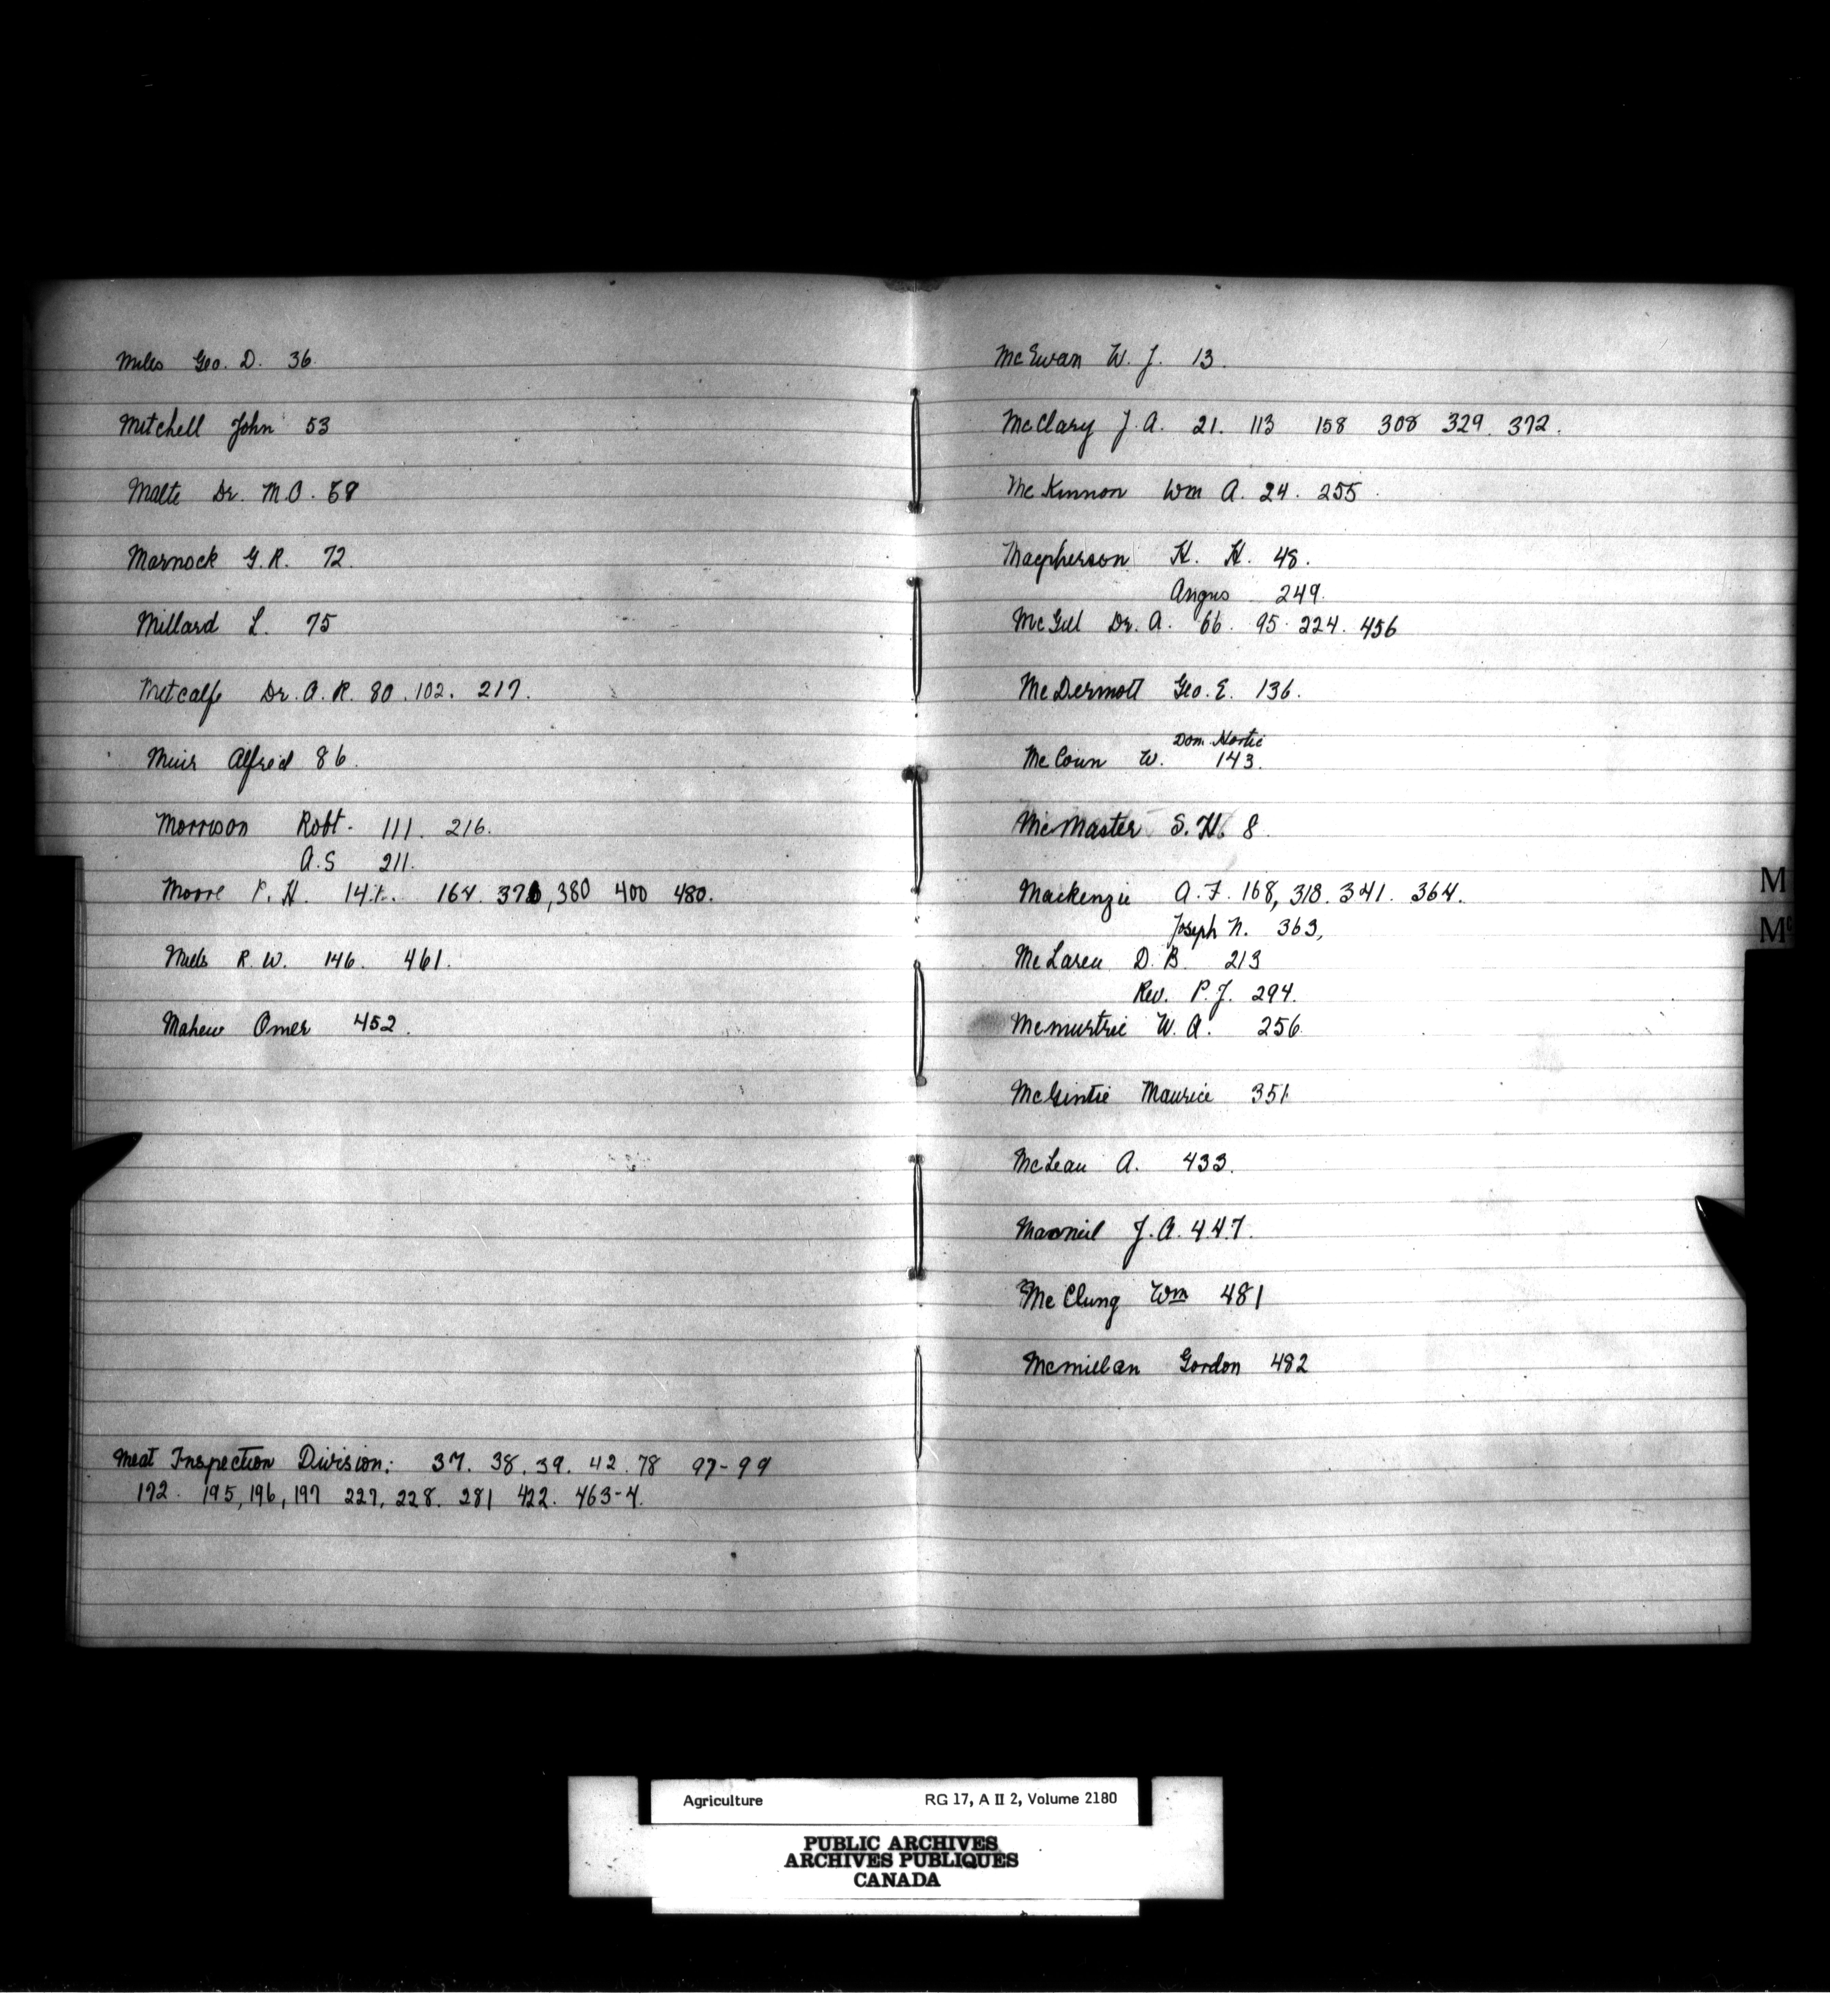 Miles Geo. D. 36.
Mitchell John 53
Malte Dr. M.O. 68
Marnock G.R. 72.
Millard L. 75
Metcalfe Dr. A.R. 80. 102. 217.
Muir Alfred 86.
Morrison Robt. 111. 216.
A.S 211.
Moore P. H. 164. 380 400 480.
Miels R. W. 146. 461.
Mahew Omer 452.
Meat Inspection Division: 37. 38. 39. 42. 78 97-99
192. 195, 196, 197 227, 228. 281 422. 463-4.
McEwan W. J. 13.
McClary J.A. 21. 113 158 308 329. 372.
McKinnon Wm A. 24. 255.
Macpherson H. H. 48.
Angus 249.
McGill Dr. A. 66. 95. 224. 456
McDermott Geo. E. 136.
Dom. Hortic
McCoun W. 143.
McMaster S. H. 8.
Mackenzie A. F. 168, 318. 341. 364.
Joseph N. 363,
McLaren D. B. 213
Rev. P. J. 294.
McMurtrie W. A. 256.
McGintie Maurice 351
McLean A. 433.
Macneil J. A. 447.
McClung Wm 481
McMillan Gordon 482
M
Mc
Agriculture RG 17, A II 2, Volume 2180
PUBLIC ARCHIVES
ARCHIVES PUBLIQUES
CANADA